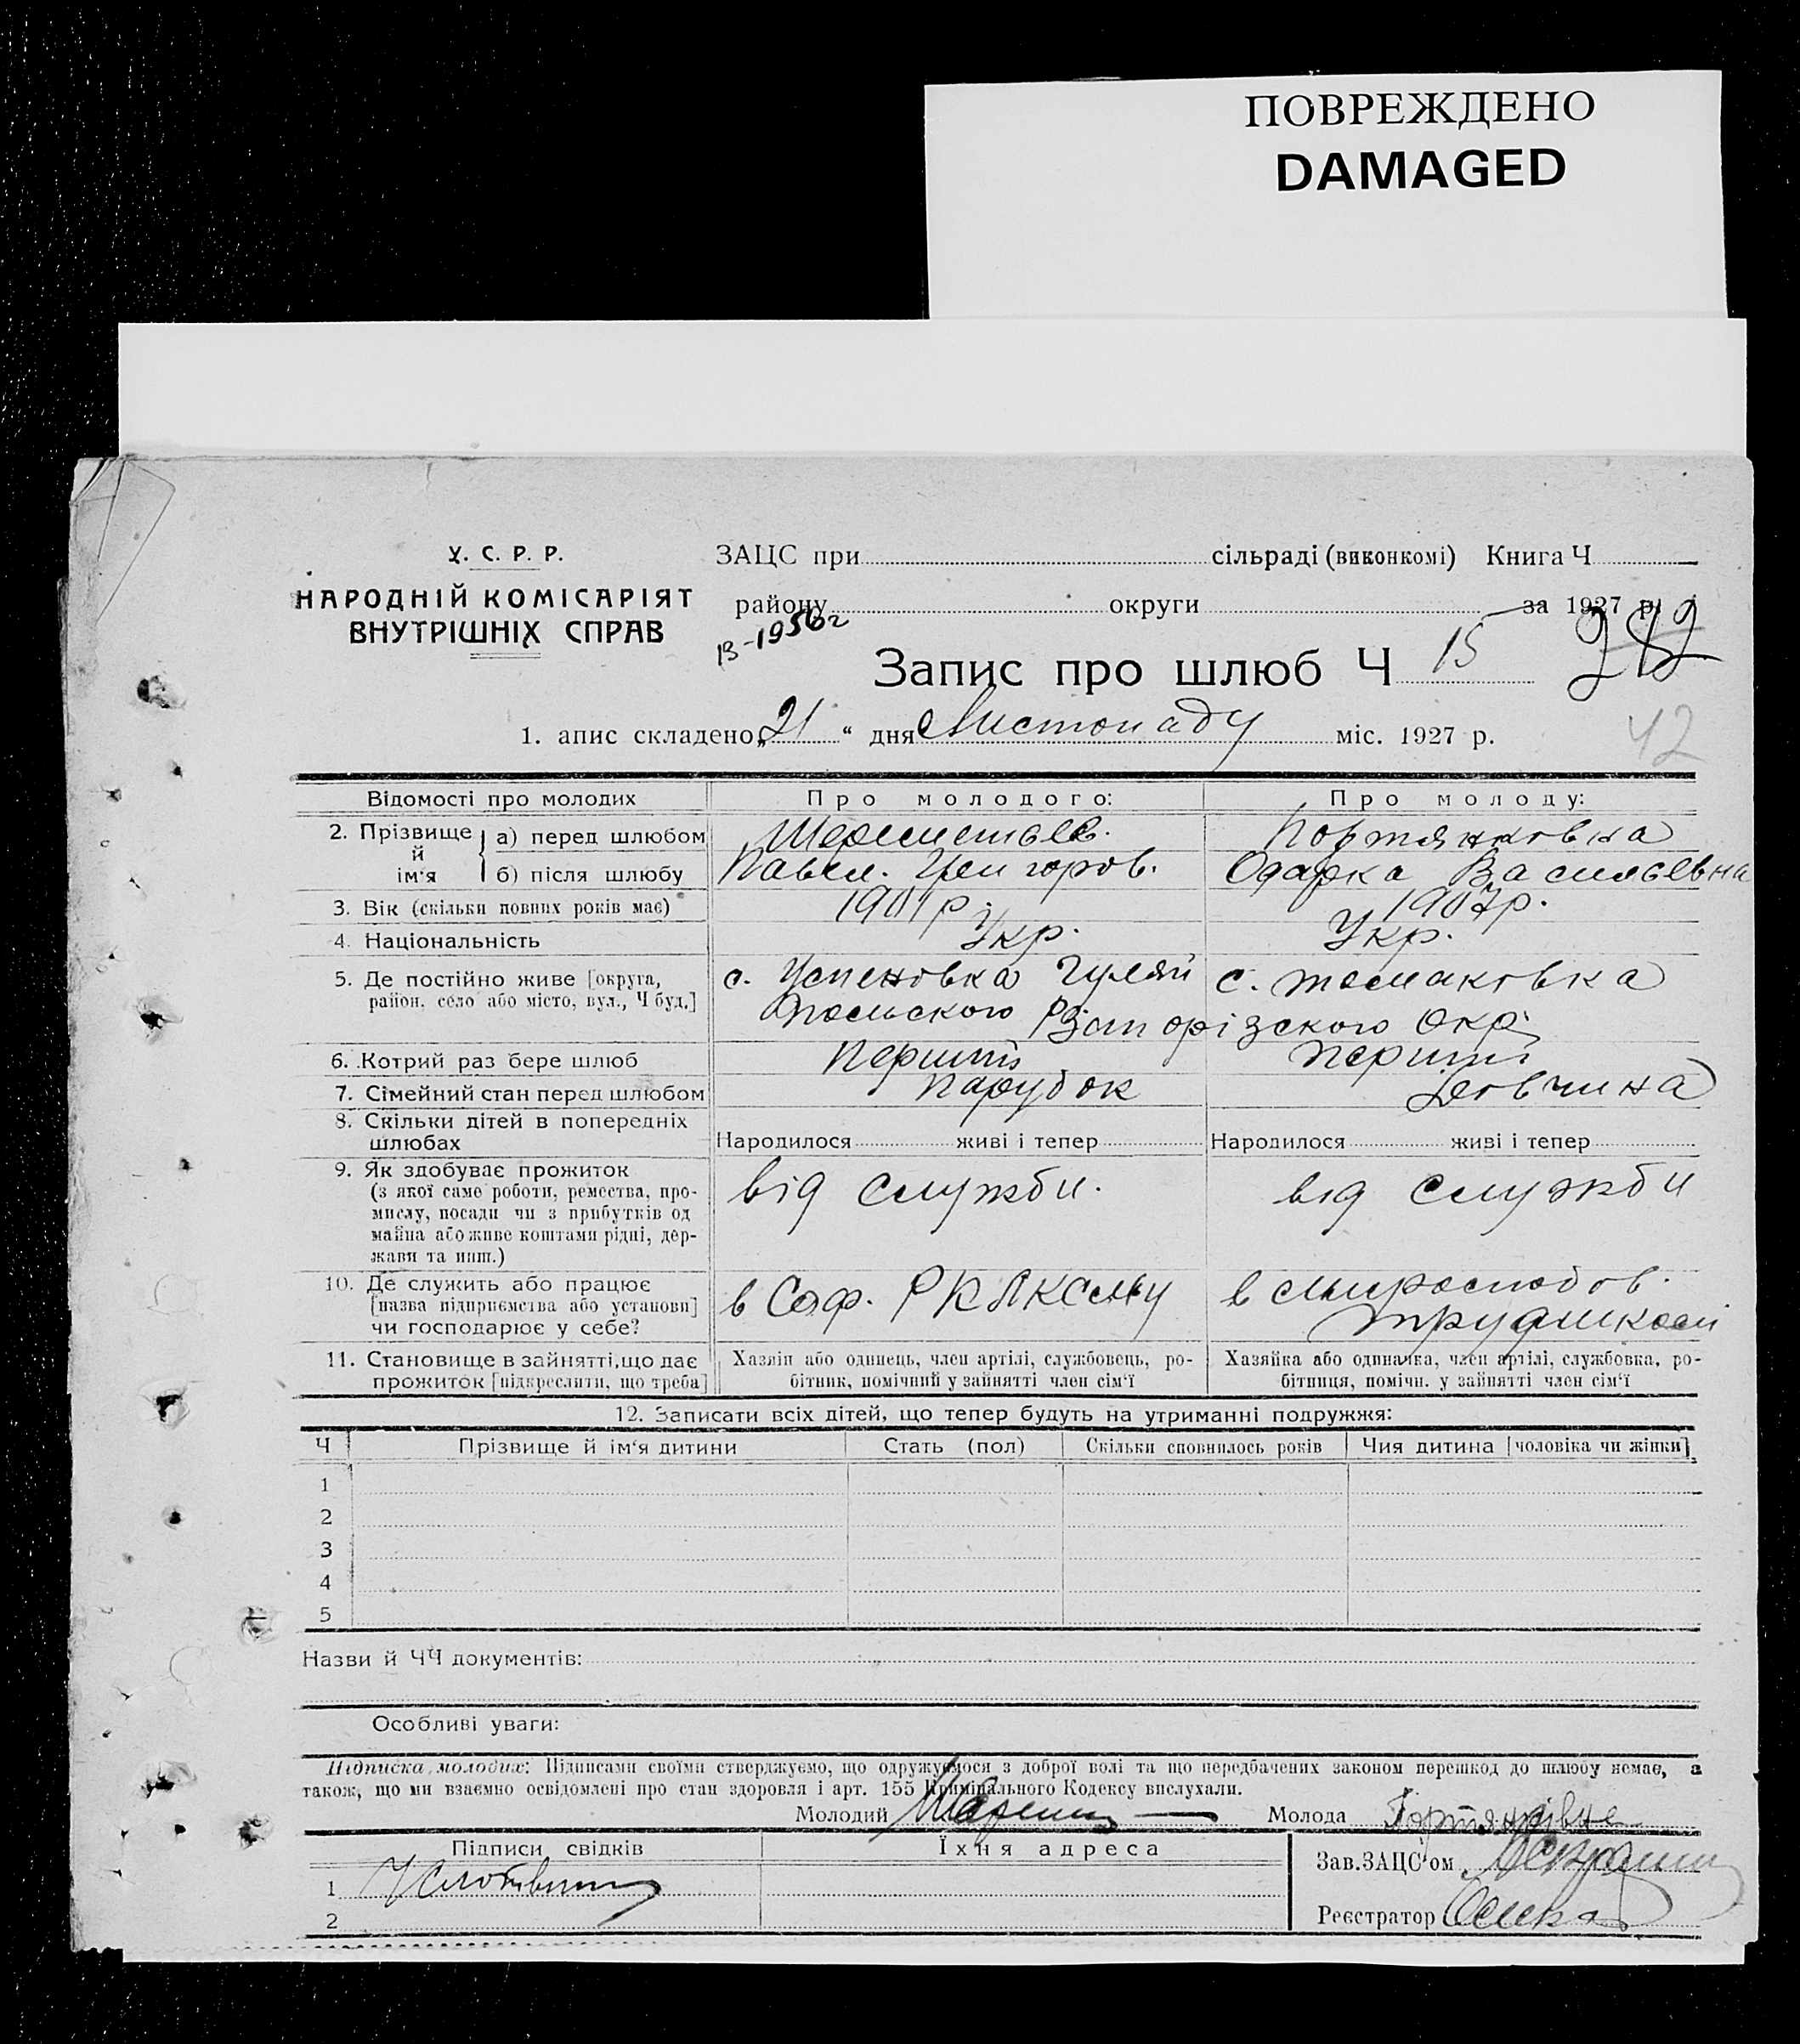 ПОВРЕЖДЕНО
DAMAGED
У. С. Р. Р.
НАРОДНІЙ КОМІСАРІЯТ
ВНУТРІШНІХ СПРАВ
ЗАЦС при сільраді (виконкомі) Книга Ч
району округи за 1927 р.
В-1956г
Запис про шлюб Ч 15
42
1. апис складено „21“ дня Листопаду міс. 1927 р.
Відомості про молодих Про молодого: Про молоду:
2. Прізвище й ім'я а) перед шлюбом Шереметьев. Портянковна
б) після шлюбу Павел. Григоров. Одарка Васильевна
3. Вік (скільки повних років має) 1901р. 1907р.
4. Національність Укр. Укр.
5. Де постійно живе [округа, с. Успеновка Гуляй с. томаковка
район, село або місто, вул., Ч буд.] Польского Р Запорізского Окр.
6. Котрий раз бере шлюб Перший Перший
7. Сімейний стан перед шлюбом Парубок Дівчина
8. Скільки дітей в попередніх
шлюбах Народилося живі і тепер Народилося живі і тепер
9. Як здобуває прожиток
(з якої саме роботи, ремества, про- від служби. від служби
мислу, посади чи з прибутків од
майна або живе коштами рідні, дер-
жави та инш.)
10. Де служить або працює
[назва підприємства або установи] в Соф. в
чи господарює у себе?
11. Становище в зайнятті, що дає Хазяїн або одинець, член артілі, службовець, ро- Хазяйка або одиначка, член артілі, службовка, ро-
прожиток [підкреслити, що треба] бітник, помічний у зайнятті член сім'ї бітниця, помічн. у зайнятті член сім'ї
12. Записати всіх дітей, що тепер будуть на утриманні подружжя:
Ч Прізвище й ім'я дитини Стать (пол) Скільки сповнилось років Чия дитина [чоловіка чи жінки]
1
2
3
4
5
Назви й ЧЧ документів:
Особливі уваги:
Підписка молодих: Підписами своїми стверджуємо, що одружуємося з доброї волі та що передбачених законом перешкод до шлюбу немає, а
також, що ми взаємно освідомлені про стан здоровля і арт. 155 Кримінального Кодексу вислухали.
Молодий Молода Портянківна
Підписи свідків Їхня адреса
Зав. ЗАЦС'ом
1
Реєстратор
2